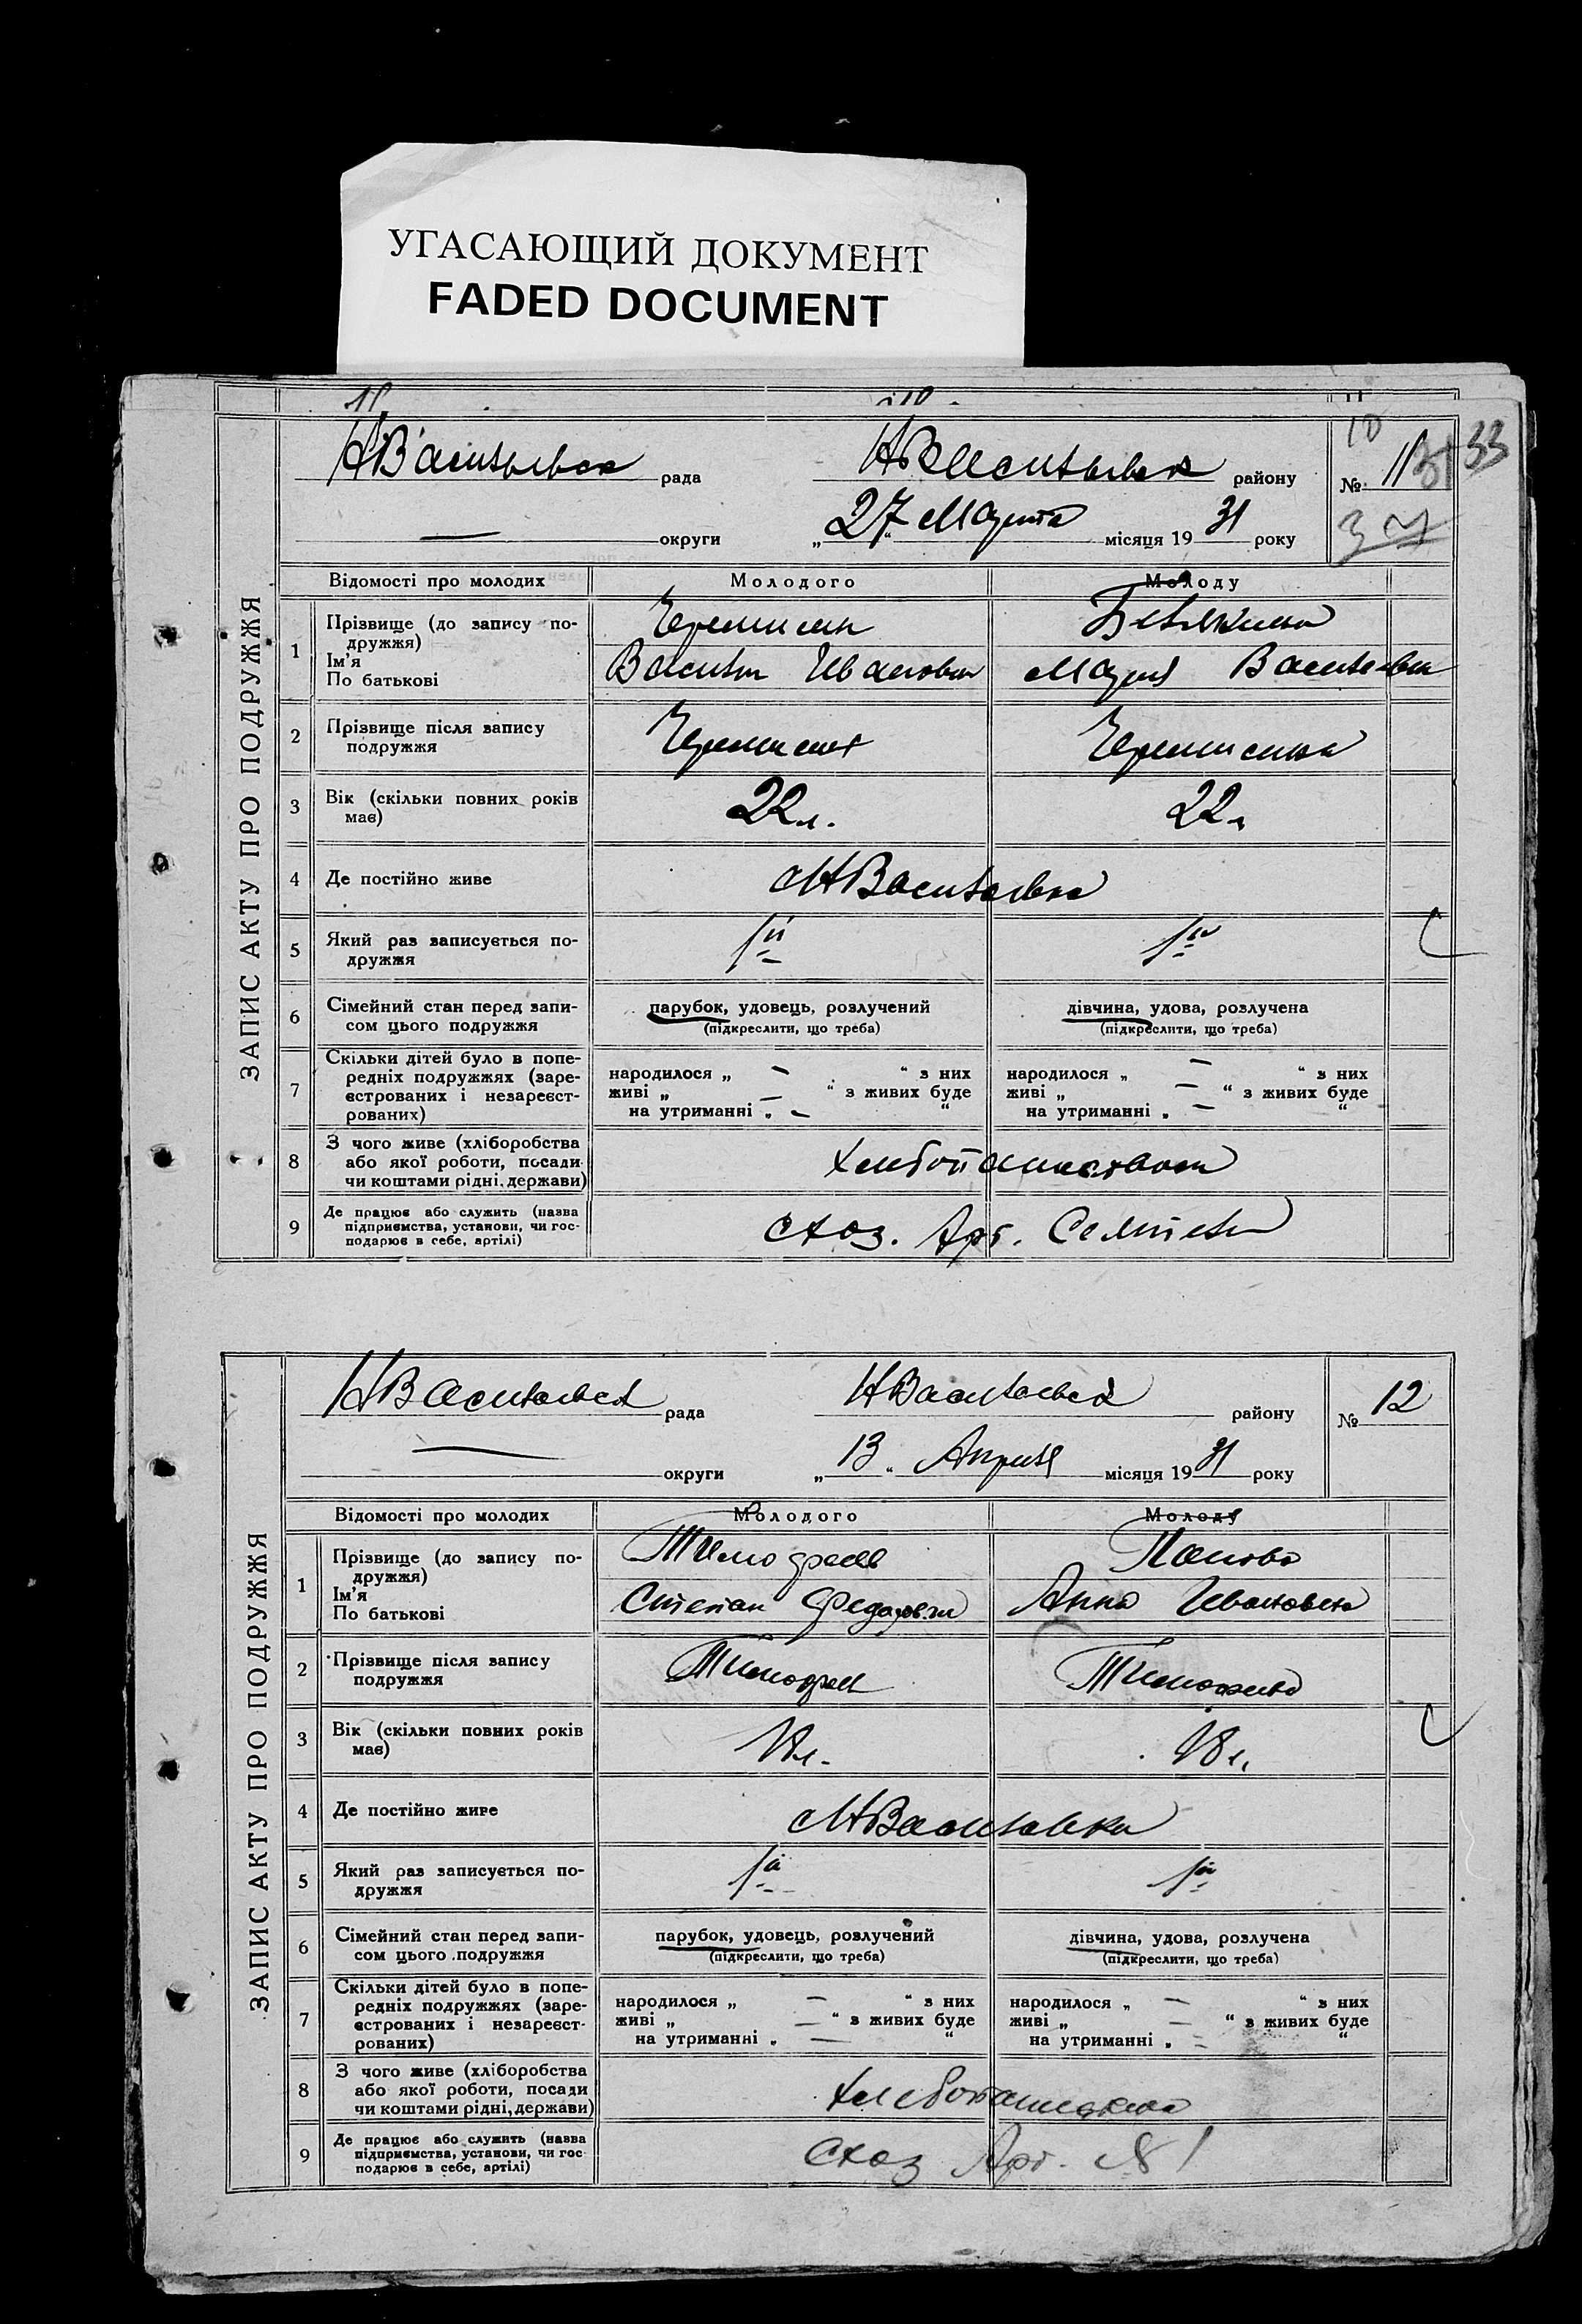 УГАСАЮЩИЙ ДОКУМЕНТ
FADED DOCUMENT
ЗАПИС АКТУ ПРО ПОДРУЖЖЯ
НВасильевск рада НВасильевск району № 11 33
округи „27“ Марта місяця 1931 року
Відомості про молодих Молодого Молоду
1 Прізвище (до запису подружжя)
Ім'я
По батькові
Василий Иванович Мария Васильевн
2 Прізвище після запису
подружжя
Черемисин Черемисина
3 Вік (скільки повних років
має)
22 л. 22 л
4 Де постійно живе
НВасильевка
5 Який раз записується по-
дружжя
1й 1й
6 Сімейний стан перед запи-
сом цього подружжя
парубок, удовець, розлучений дівчина, удова, розлучена
(підкреслити, що треба) (підкреслити, що треба)
7 Скільки дітей було в попе-
редніх подружжях (заре-
єстрованих і незареєст-
рованих)
народилося „ — “ з них народилося „ — “ з них
живі „ — “ з живих буде живі „ — “ з живих буде
на утриманні „ — “ на утриманні „ — “
8 З чого живе (хліборобства
або якої роботи, посади
чи коштами рідні, держави)
9 Де працює або служить (назва
підприємства, установи, чи гос-
подарює в себе, артілі)
схоз. Арт.
ЗАПИС АКТУ ПРО ПОДРУЖЖЯ
НВасильевск рада НВасильевск району № 12
округи „13“ Апреля місяця 1931 року
Відомості про молодих Молодого Молоду
1 Прізвище (до запису по-
дружжя)
Ім'я
По батькові
Тимофеев Попова
Степан Федорович Анна Ивановна
2 Прізвище після запису
подружжя
Тимофеев Тимофеева
3 Вік (скільки повних років
має)
18 л. 18 л.
4 Де постійно живе
НВасильевка
5 Який раз записується по-
дружжя
1й 1й
6 Сімейний стан перед запи-
сом цього подружжя
парубок, удовець, розлучений дівчина, удова, розлучена
(підкреслити, що треба) (підкреслити, що треба)
7 Скільки дітей було в попе-
редніх подружжях (заре-
єстрованих і незареєст-
рованих)
народилося „ — “ з них народилося „ — “ з них
живі „ — “ з живих буде живі „ — “ з живих буде
на утриманні „ — “ на утриманні „ — “
8 З чого живе (хліборобства
або якої роботи, посади
чи коштами рідні, держави)
9 Де працює або служить (назва
підприємства, установи, чи гос-
подарює в себе, артілі)
схоз Арт. № 1